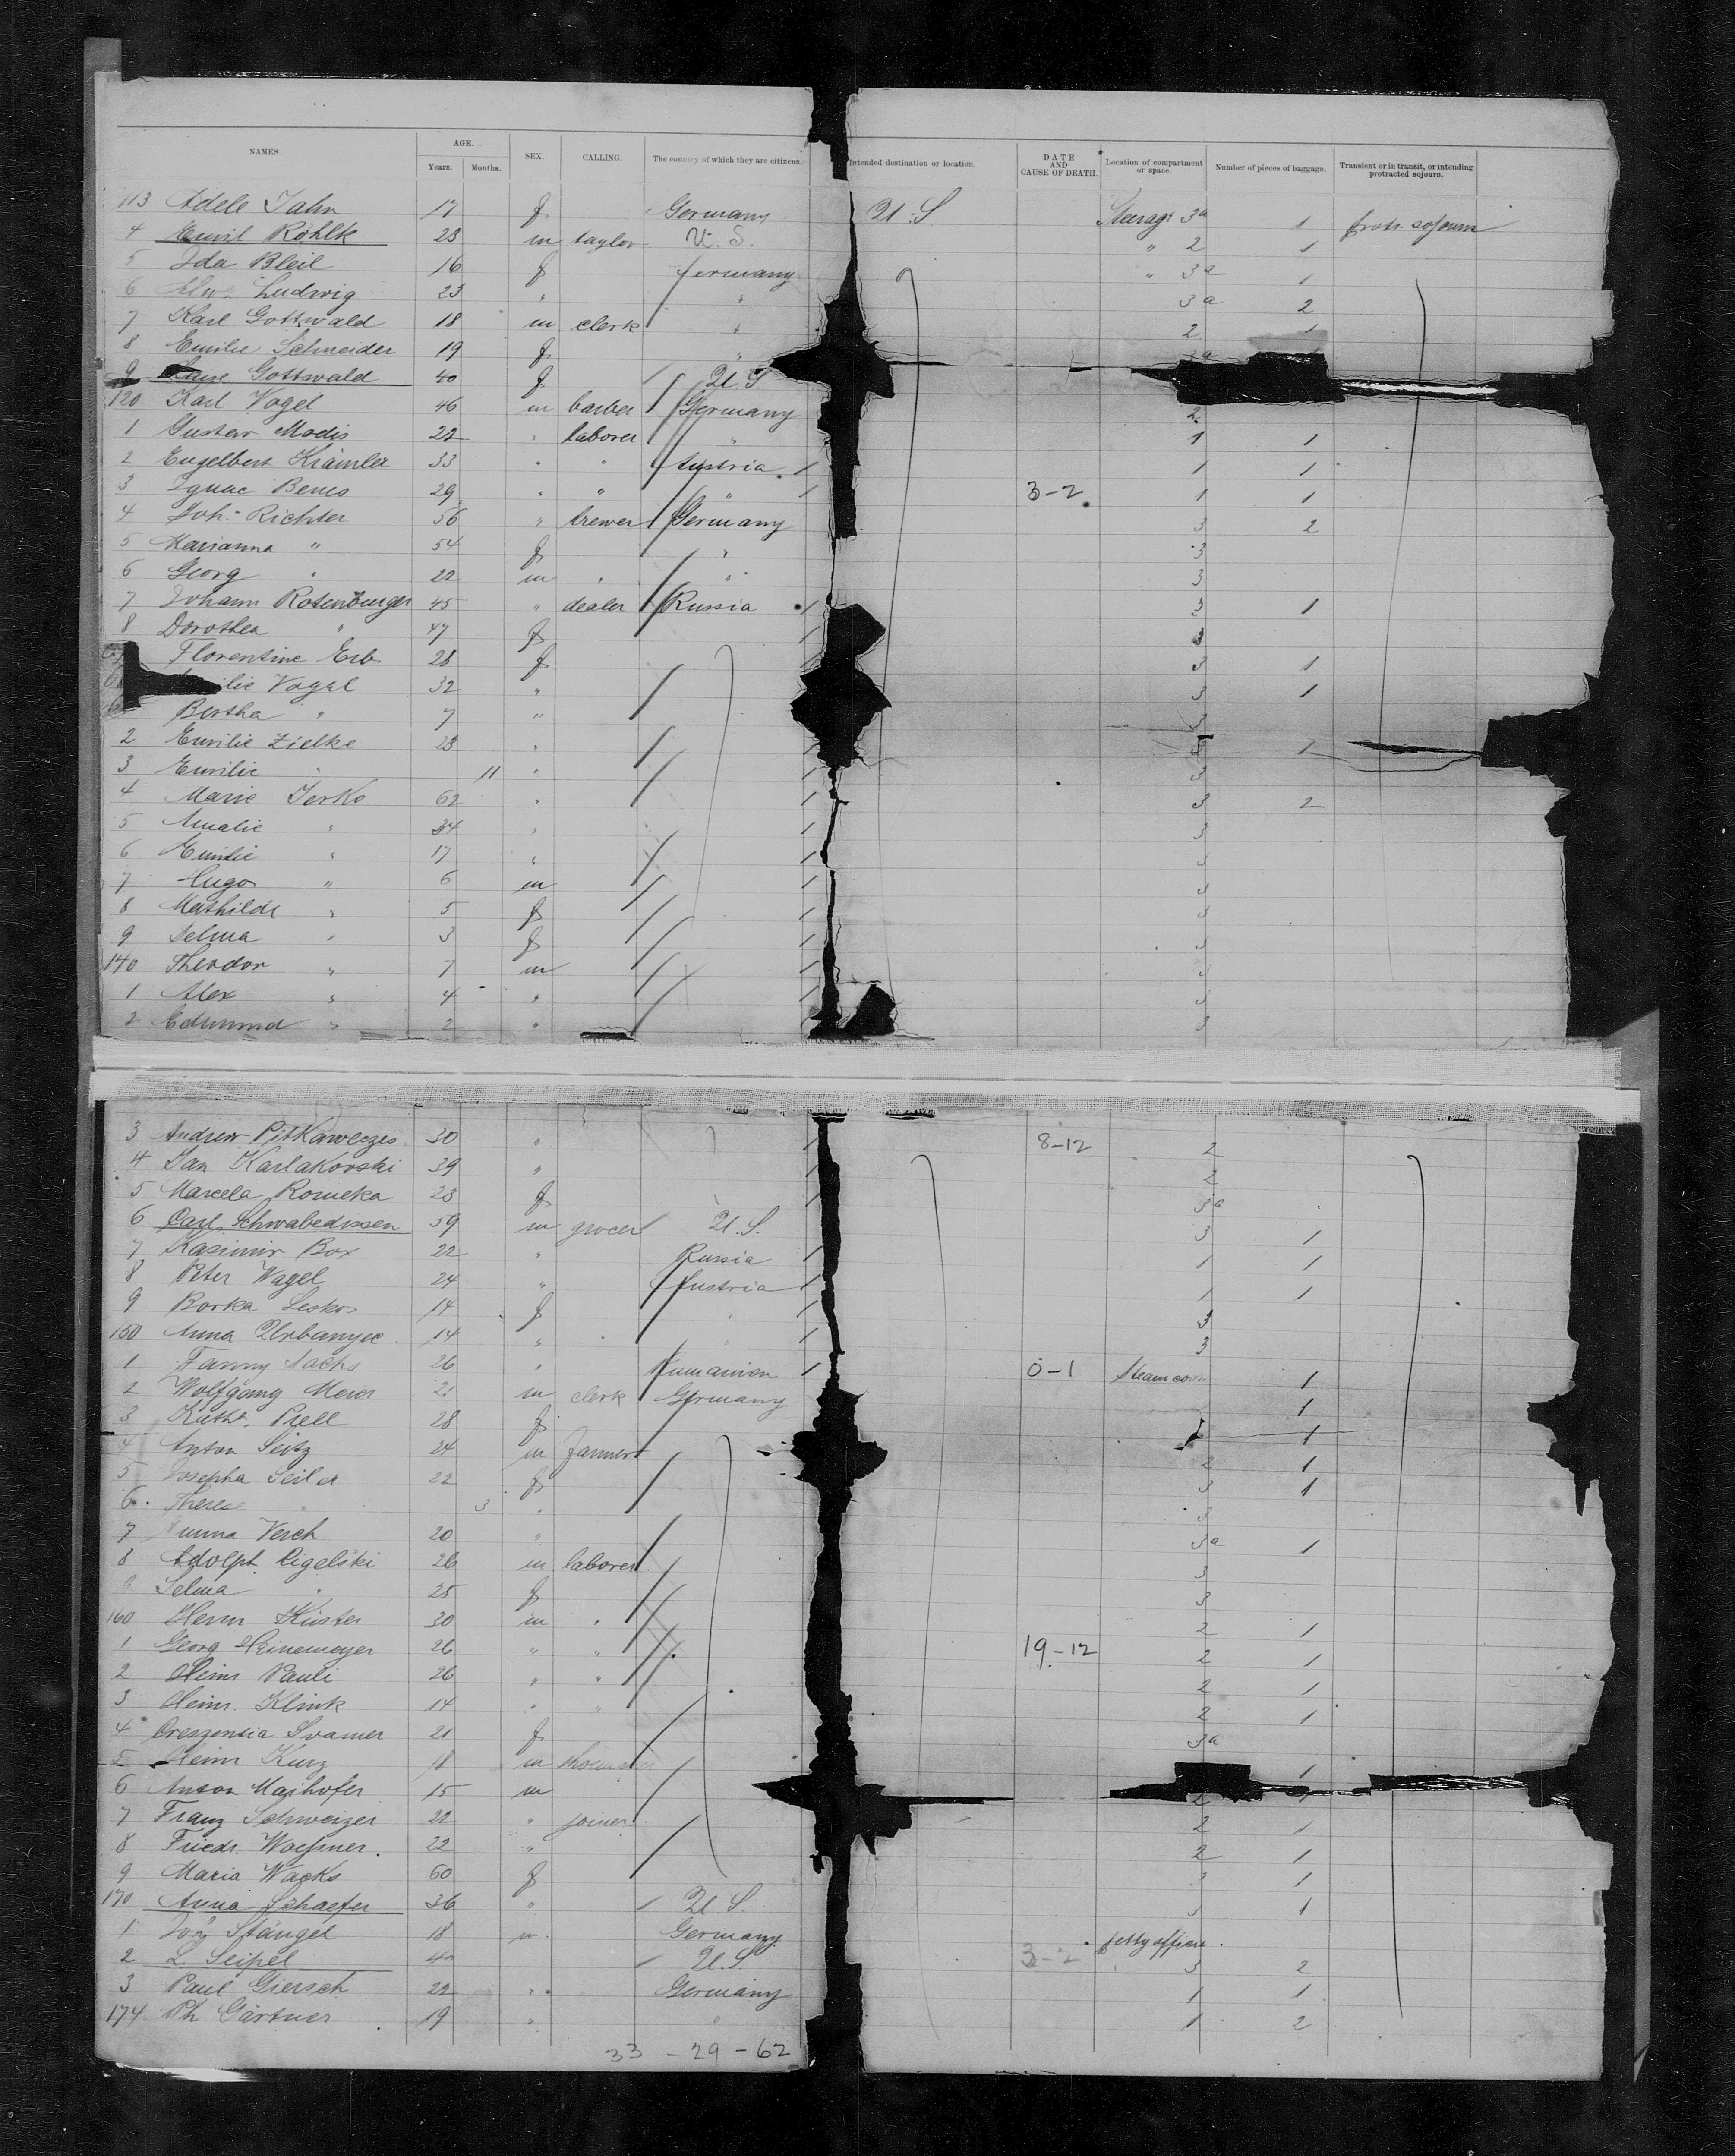 NAMES. AGE. SEX. CALLING. The country of which they are citizens. Intended destination or location. DATE AND CAUSE OF DEATH. Location of compartment or space. Number of pieces of baggage. Transient or in transit, or intending protracted sojourn.
Years. Months.
113 Adele Jahn 17 f Germany U.S Steerage 3a 1 protr. sojourn
4 Emil Röhlk 23 m taylor U.S. " 2 1
5 Ida Bleil 16 f Germany " 3a 1
6 Ludwig 23 " " 3a 2
7 Karl Gottwald 18 m clerk " 2 1
8 Emilie Schneider 19 f " 3a
9 Gottwald 40 f U.S
120 Karl Vogel 46 m barber Germany 2
1 Gustav Modis 22 " laborer " 1 1
2 Engelbert Krämler 33 " " Austria 1 1
3 Ignac Benes 29 " " " 3-2 1 1
4 Joh. Richter 56 " brewer Germany 3 2
5 Marianna " 54 f " 3
6 Georg " 22 m " " 3
7 Johann Rosenburger 45 " dealer Russia 3 1
8 Dorothea " 47 f 3
Florentine Erb 28 f 3 1
Vogel 32 " 3 1
Bertha " 7 " 3
2 Emilie Zielke 23 " 3 1
3 Emilie " 11 " 3
4 Marie Jerke 62 " 3 2
5 Amalie " 34 " 3
6 Emilie " 17 " 3
7 Hugo " 6 m 3
8 Mathilde " 5 f 3
9 Selma " 3 f 3
140 Theodor " 7 m 3
1 Alex " 4 " 3
2 Edmund " 2 " 3
3 Andrew Pitkaweczes 30 " 8-12 2
4 Jan Karlakovski 39 " 2
5 Marcela Romeka 23 f 3a
6 Carl Schwabedissen 59 m grocer U.S. 3 1
7 Kasimir Box 22 " Russia 1 1
8 Peter Wagel 24 " Austria 1 1
9 Borka Lesko 14 f " 3
150 Anna Urbanyec 14 " " 3
1 Fanny Sacks 26 " Rumanien 0-1 1
2 Wolfgang Meier 21 m clerk Germany 1
3 Kath. Prell 28 f 1
4 Anton Seitz 24 m farmer 2 1
5 Josepha Seiler 22 f 3 1
6 Therese " 3 " 3
7 Anna Verch 20 " 3a 1
8 Adolph Cigelski 26 m laborer 3
9 Selma " 25 f 3
160 Herm Küster 30 m " 2 1
1 Georg Heinemeyer 26 " " 19-12 2 1
2 Heinr Pauli 26 " " 2 1
3 Heinr. Klink 14 " " 2 1
4 Creszensia Svamer 21 f 3a
5 Heinr Kurz 18 m 1
6 Anton Maihofer 15 m 2 1
7 Franz Schweizer 22 " joiner 2 1
8 Friedr. Waessner 22 " 2 1
9 Maria Wacks 60 f 3 1
170 Anna Schaefer 36 " U.S. 3 1
1 Stängel 18 m Germany petty officer
2 L. Seipel 4 U.S. 3-2 3 2
3 Paul Giersch 22 " Germany 1 1
174 Ph Gärtner 19 " " 1 2
33 - 29 - 62